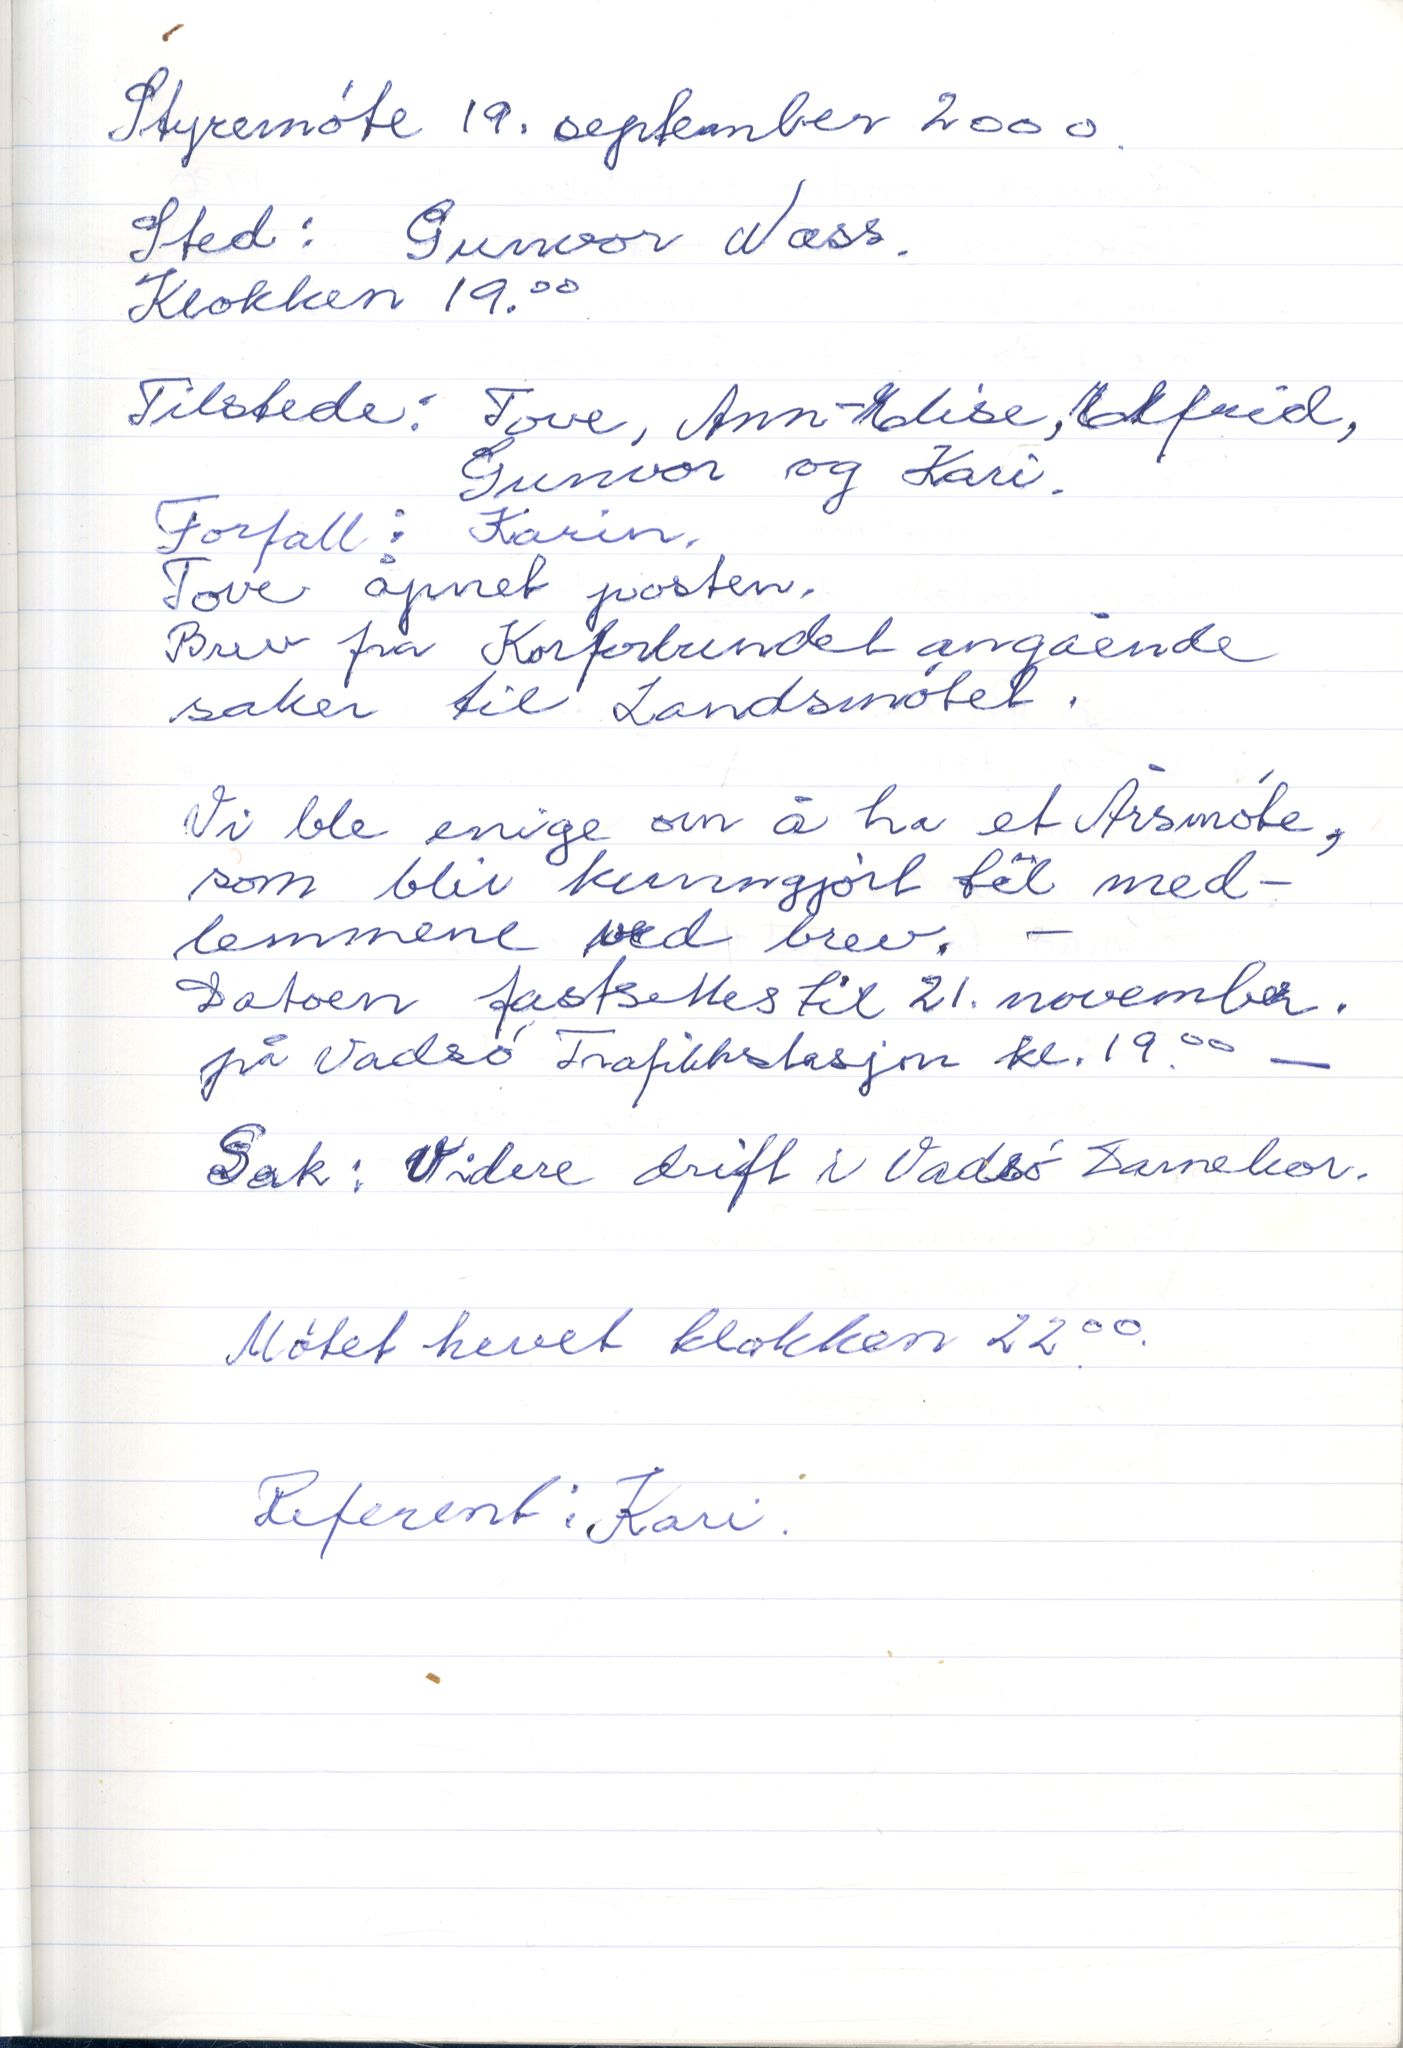 Styremóte 19. september 2000.
Sted: Gunvor Næss.
Klokken 19.00
Tilstede: Tove, Ann-Elise, Alfrid,
Gunvor og Kari.
Forfall: Karin.
Tove åpnet posten.
Brev fra Korforbundet angående
saker til Landsmótet.
Vi ble enige om å ha et Årsmóte,
som blir kunngjórt til med-
lemmene ved brev. -
Datoen fastsettes til 21. november.
på Vadsó Trafikkstasjon kl. 19.00 —
Sak: Videre drift i Vadsó Damekor.
Mótet hevet klokken 22.00.
Referent: Kari.